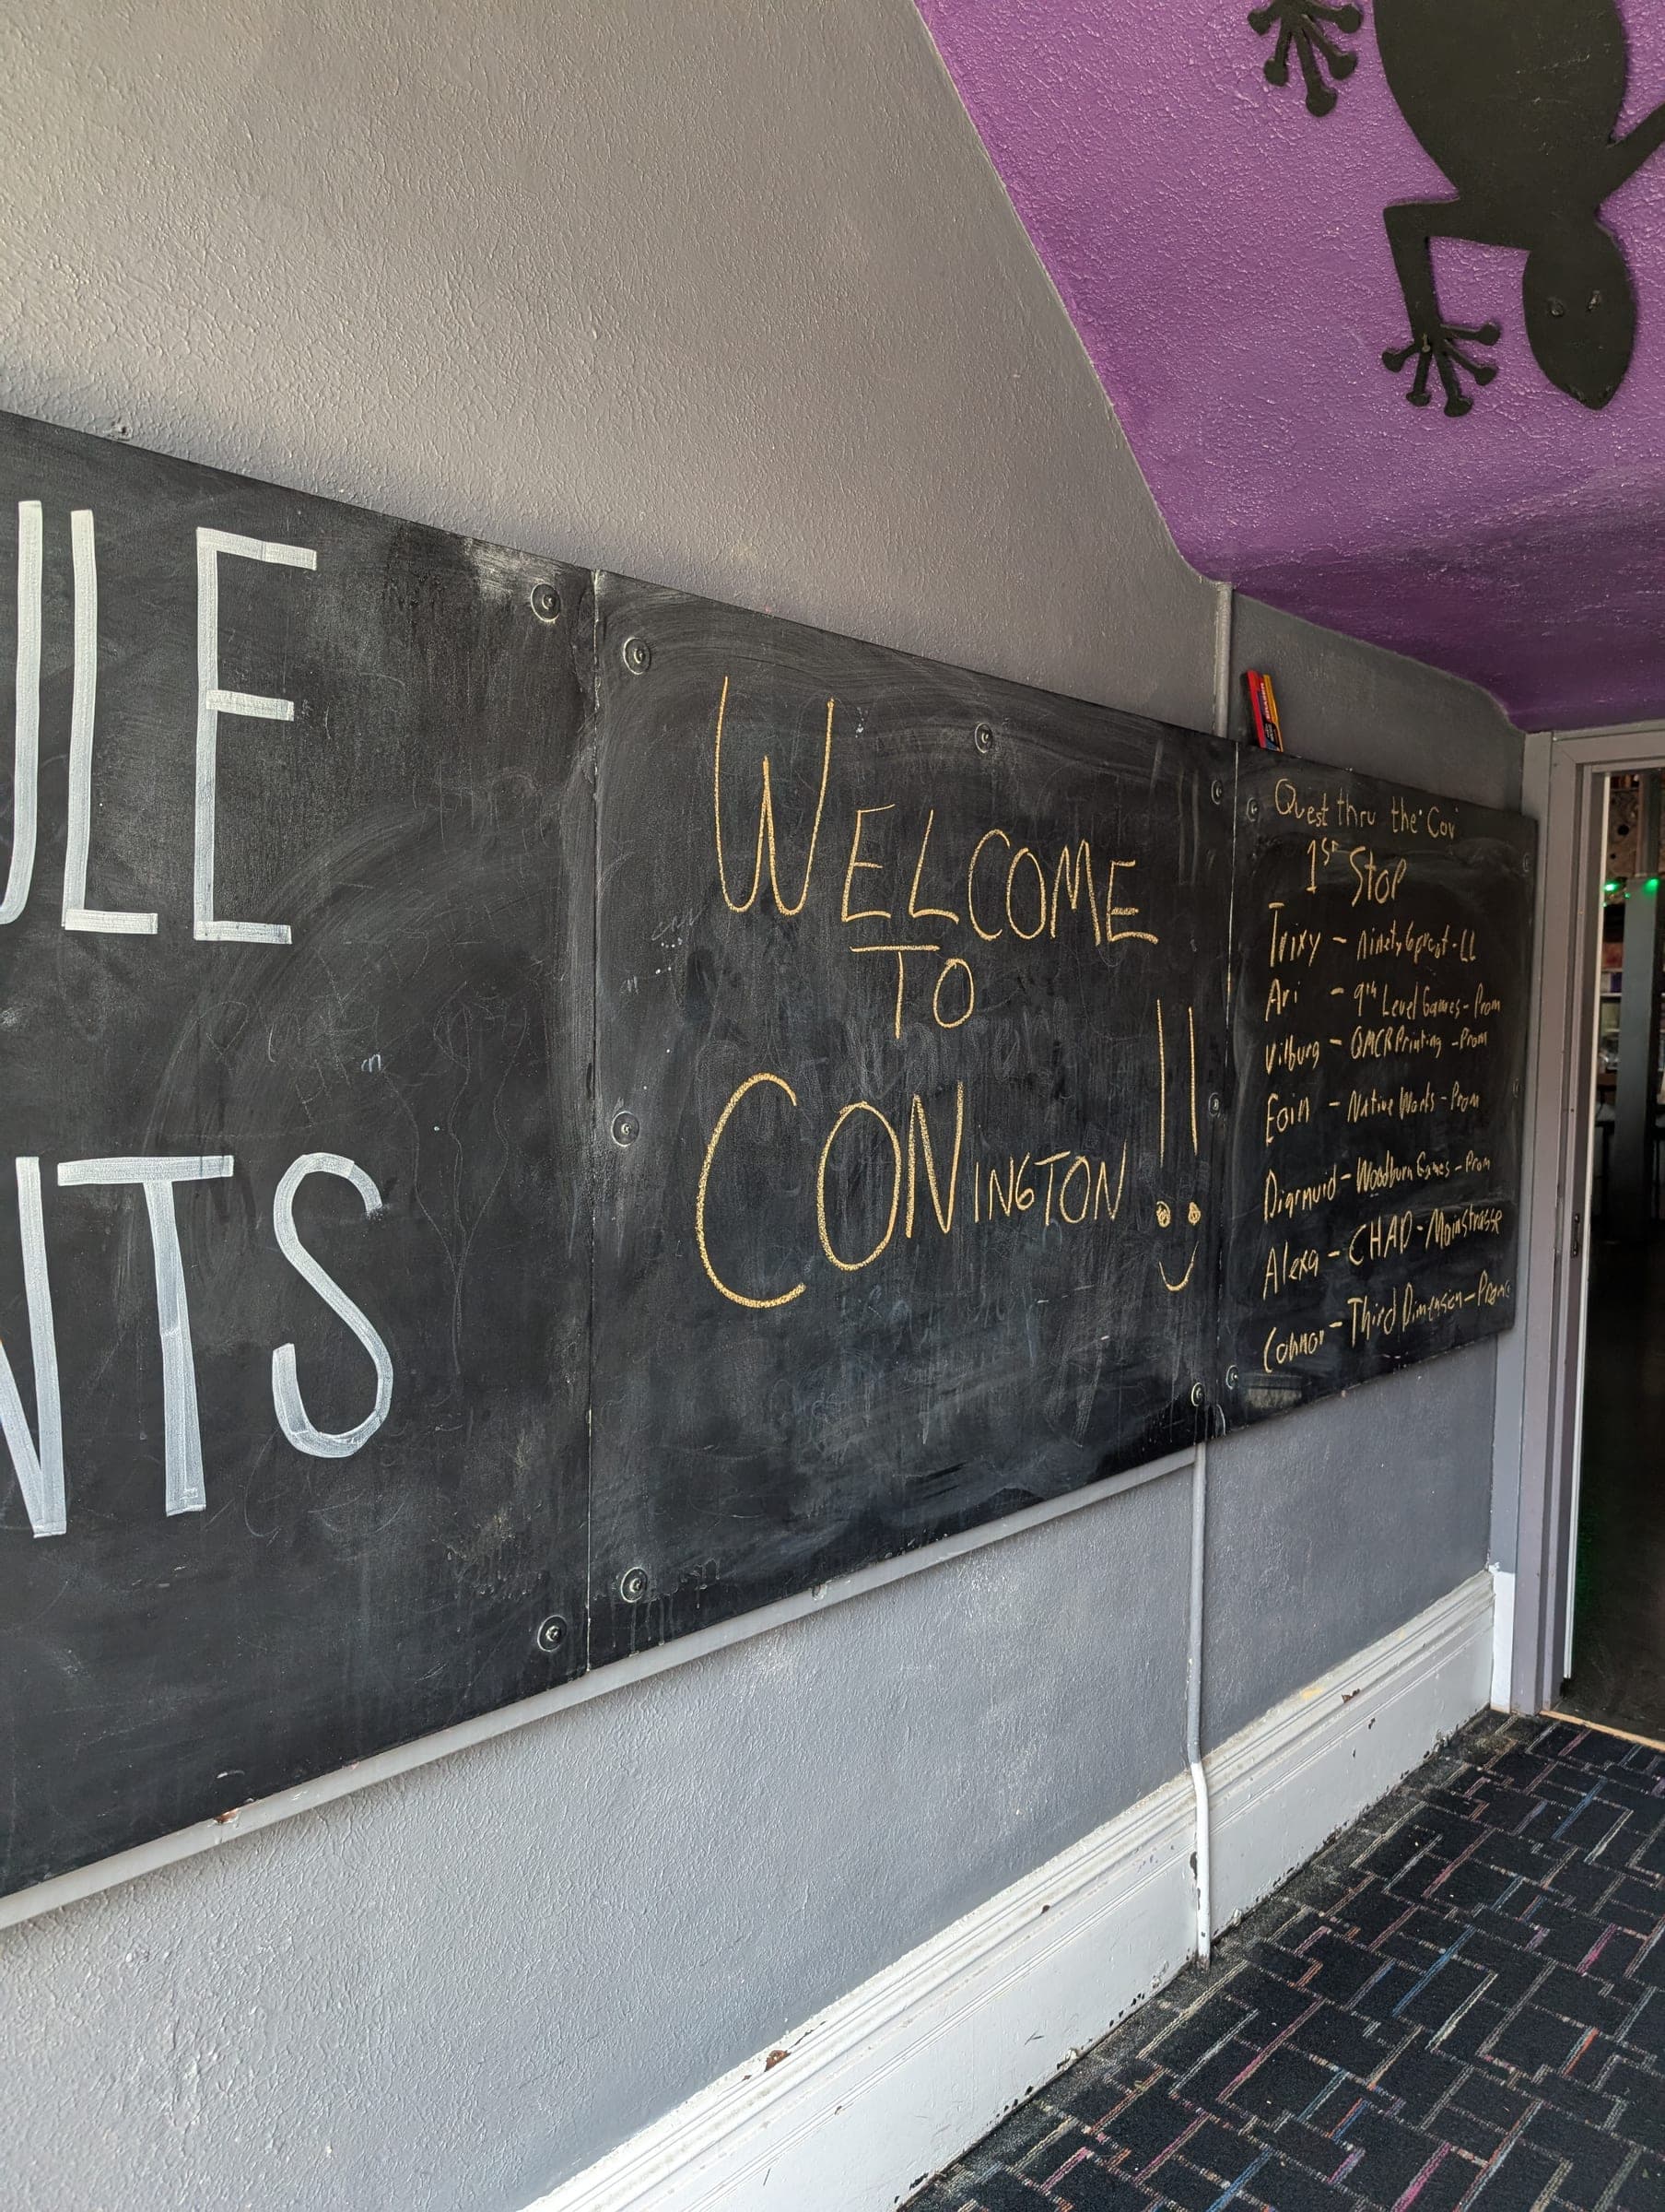 ULE
NTS
WELCOME
TO
CONINGTON !!
Quest thru the Cov
1st Stop
Trixy - - LL
Ari - 9th Level Games - Prom
Vilburg - QMCR Printing - Prom
Eoin - Native Works - Prom
Diarmuid - Woodburn Games - Prom
Alexa - CHAD - Mainstrasse
Connor - Third Dimension -